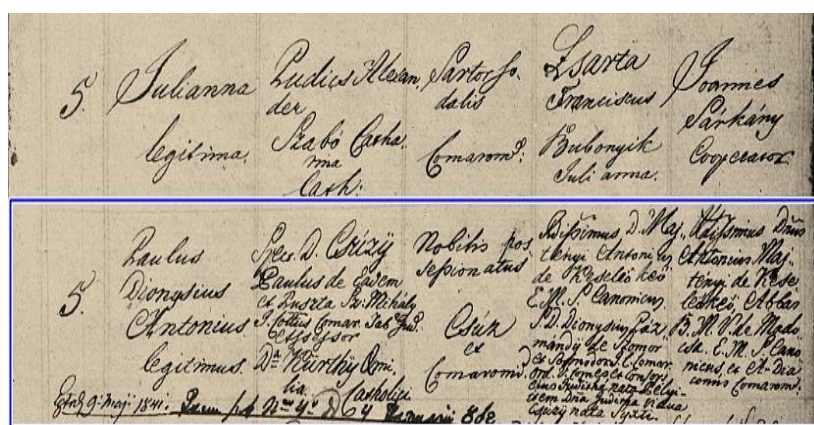 5. Julianna legitima.
Ludics Alexan
der
Szabó Catha
rina
Cath:
Sartor so-
dalis
Comarom:
Zsarta
Franciscus
Bubonyik
Juli anna.
Joannes
Sárkány
Cooperator
5. Paulus
Dionysius
Antonius
legitimus.
Spec. D. Csúzÿ
Paulus de Eadem
et Puszta Sz. Mihály
I. Cottus Comar. Tab Jud.
Assessor
Dna Kürthy Emi
lia
Catholici
Nobilis pos
sessionatus
Csúz
et
Comarom:
Rdissimus D. Maj
tényi Antonius
de Keseleő keő
E. M. S. Canonicus
S. D. Dionysius Páz
mándy de Szomor
et Somodor I. Comar.
ord. V. Comes et Consors
ejus Judith nata
item Dna Juditha vidua
Csúzy nata
Rdissimus Dnus
Antonius Maj
tényi de Kese
leőkeő Abbas
B. M. V. de
E. M. S. Cano
nicus, et A. Dia
conus Comarom:
9 Maji 1841.